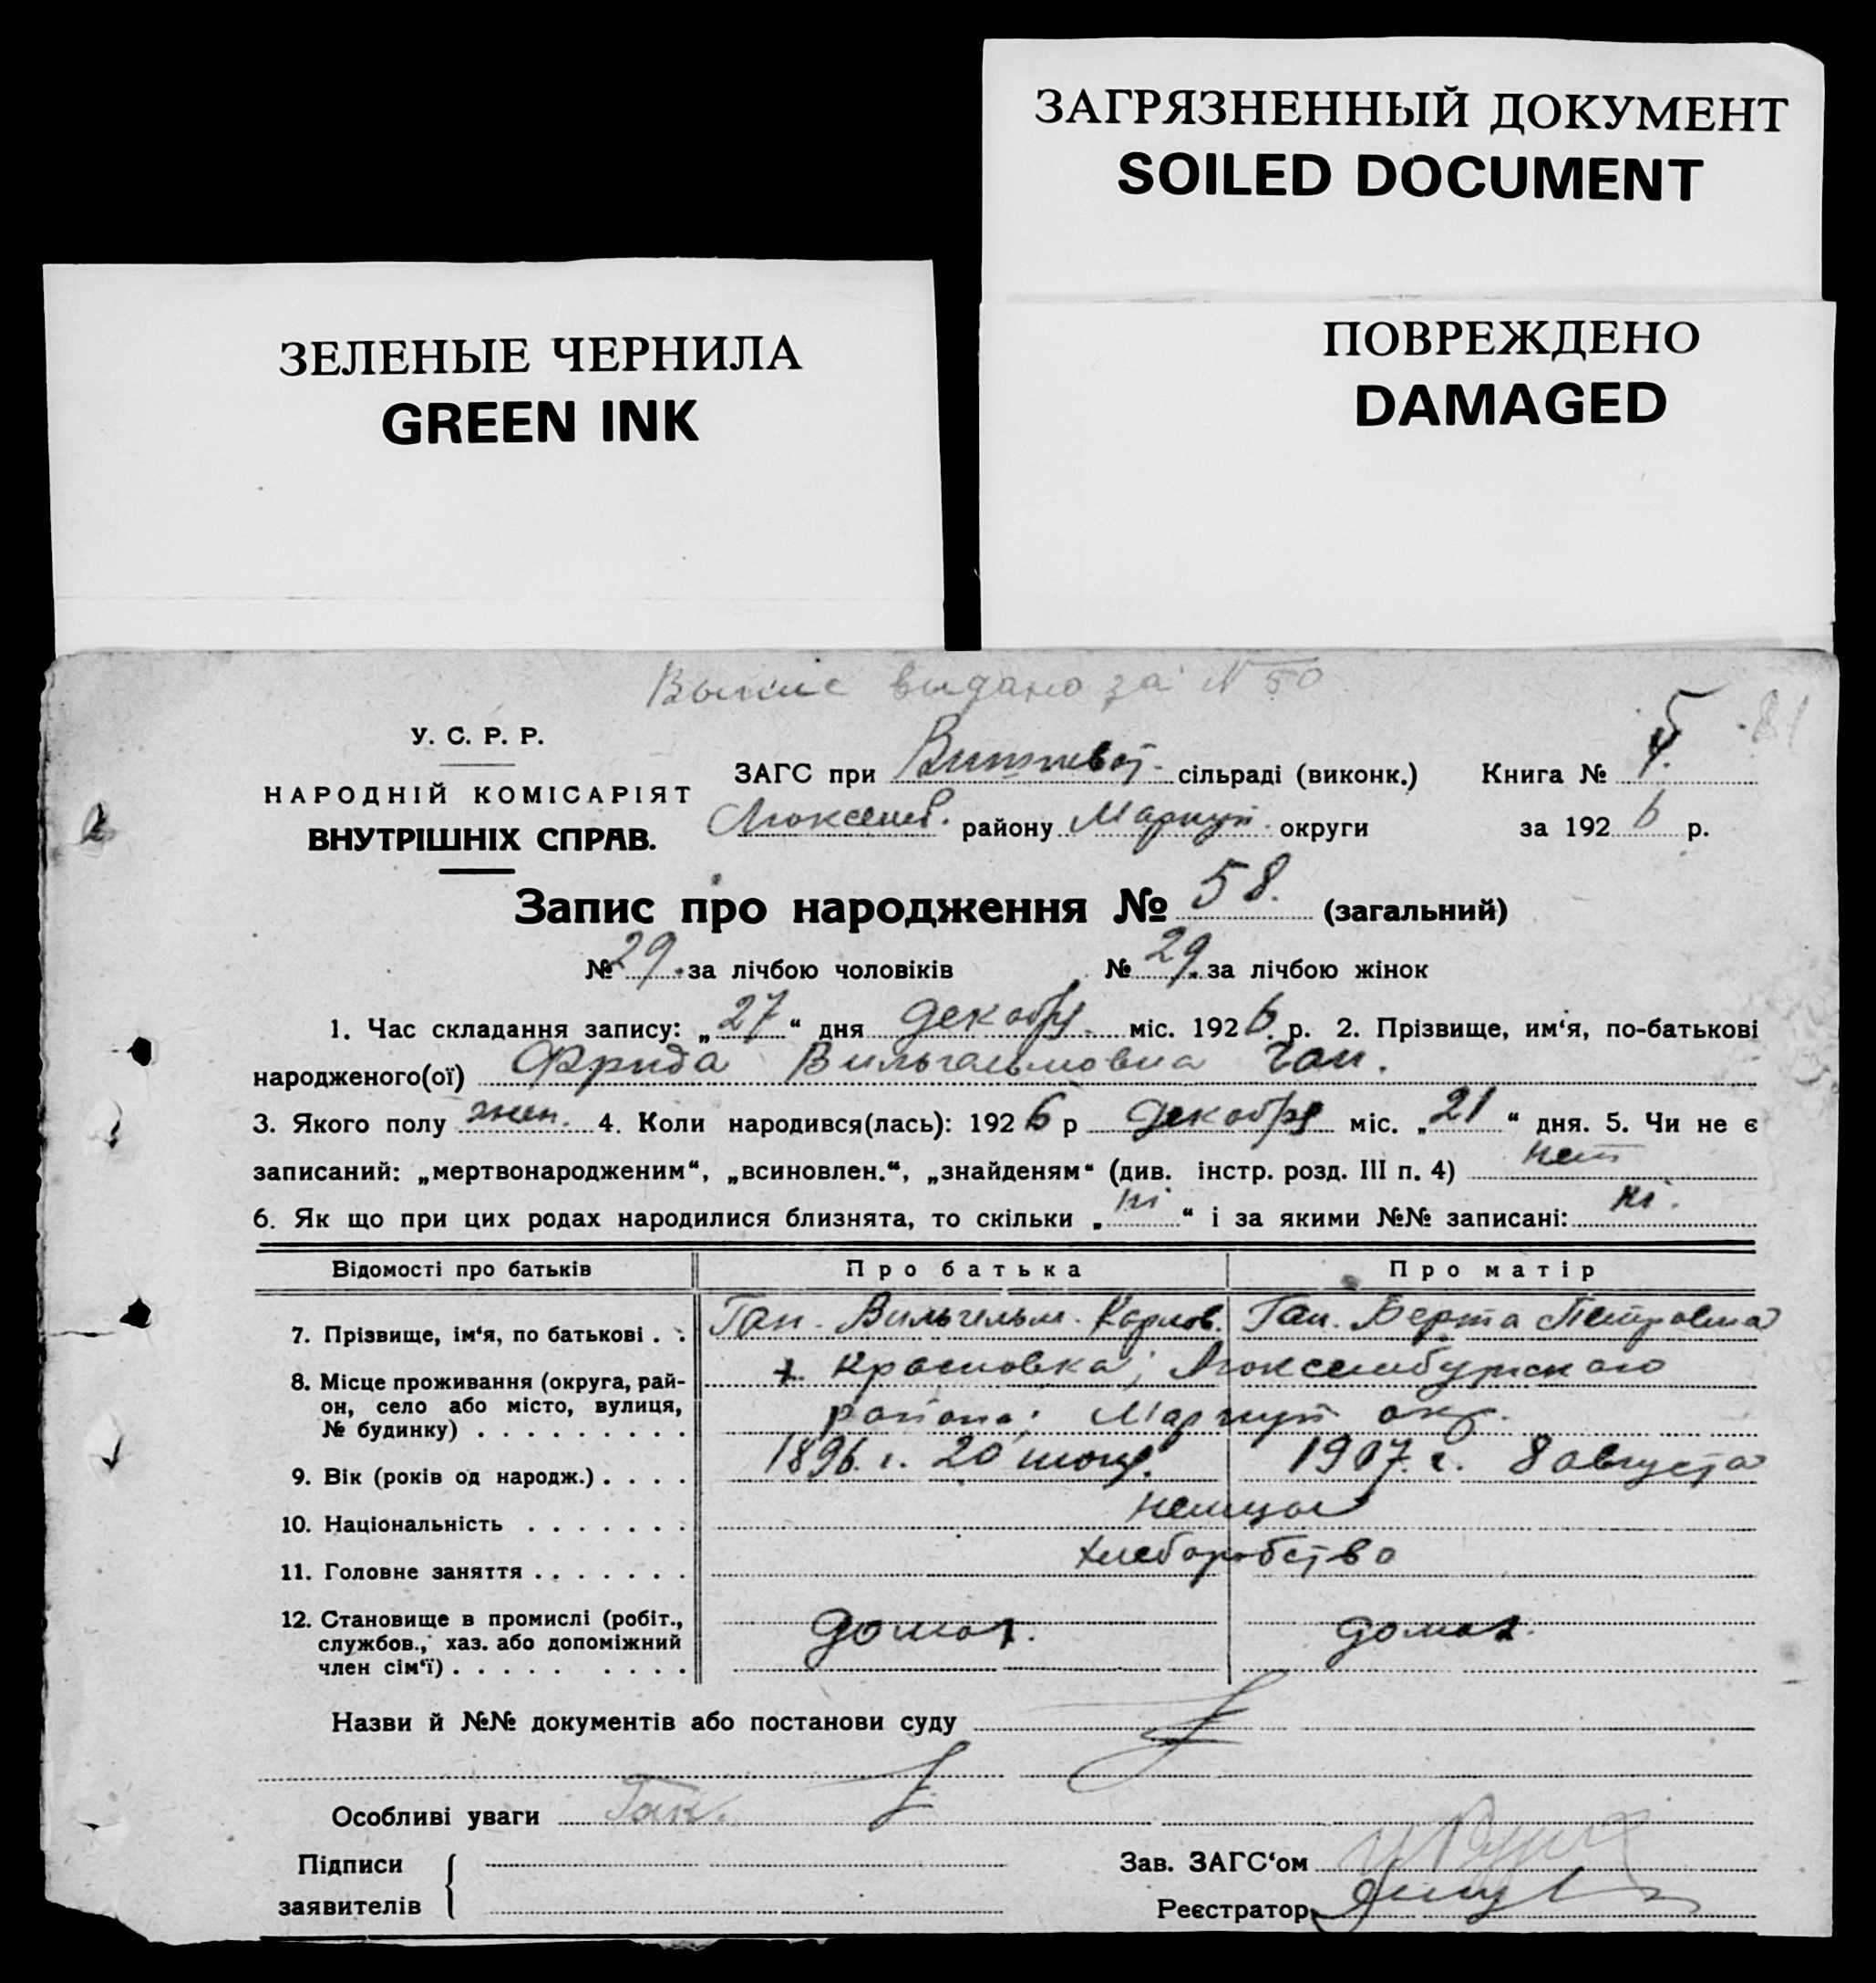 ЗАГРЯЗНЕННЫЙ ДОКУМЕНТ
SOILED DOCUMENT
ЗЕЛЕНЫЕ ЧЕРНИЛА
GREEN INK
ПОВРЕЖДЕНО
DAMAGED
выдано за N 50
81
У. С. Р. Р.
НАРОДНІЙ КОМІСАРІЯТ
ВНУТРІШНІХ СПРАВ.
ЗАГС при сільраді (виконк.) Книга №
Люксемб. району Мариуп. округи за 1926 р.
Запис про народження № 58. (загальний)
№ 29. за лічбою чоловіків № 29. за лічбою жінок
1. Час складання запису: „27“ дня декабря міс. 1926 р. 2. Прізвище, им‘я, по-батькові
народженого(ої) Фрида Вильгельмовна Ган.
3. Якого полу жен. 4. Коли народився(лась): 1926 р декабря міс. „21“ дня. 5. Чи не є
записаний: „мертвонародженим“, „всиновлен.“, „знайденям“ (див. інстр. розд. III п. 4) нет
6. Як що при цих родах народилися близнята, то скільки „ні“ і за якими №№ записані: ні.
Відомості про батьків Про батька Про матір
7. Прізвище, ім‘я, по батькові . . Ган. Вильгельм. Карлов. Ган. Берта Петровна
8. Місце проживання (округа, рай-
он, село або місто, вулиця,
№ будинку) . . . . . . . . .
х. Красновка; Люксембургского
района; Мариуп окр.
9. Вік (років од народж.) . . . . 1896. г. 20 1907. г. 8 августа
10. Національність . . . . . . . немцы
11. Головне заняття . . . . . . . хлеборобство
12. Становище в промислі (робіт.,
службов., хаз. або допоміжний
член сім‘ї) . . . . . . . . .
домох. домох.
Назви й №№ документів або постанови суду
Особливі уваги Ган.
Підписи
заявителів
Зав. ЗАГС‘ом
Реєстратор